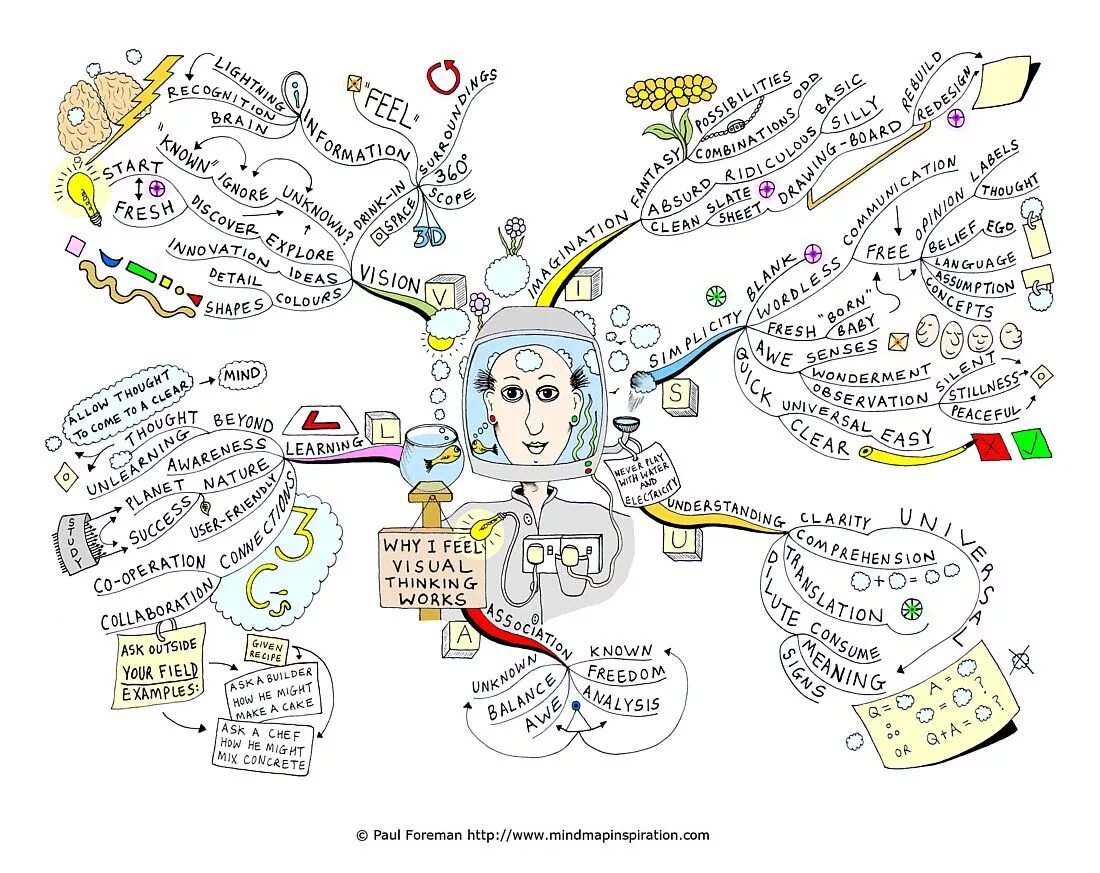 WHY I FEEL
VISUAL
THINKING
WORKS
V
VISION
DRINK-IN
"FEEL"
INFORMATION
i
LIGHTNING
RECOGNITION
BRAIN
SURROUNDINGS
360°
SCOPE
3D
SPACE
UNKNOWN?
IGNORE
"KNOWN"
EXPLORE
DISCOVER
START
FRESH
IDEAS
INNOVATION
COLOURS
DETAIL
SHAPES
I
IMAGINATION
FANTASY
POSSIBILITIES
COMBINATIONS
ODD
ABSURD
RIDICULOUS
BASIC
SILLY
CLEAN
SLATE
SHEET
DRAWING-BOARD
REBUILD
REDESIGN
S
SIMPLICITY
BLANK
WORDLESS
COMMUNICATION
FREE
OPINION
LABELS
THOUGHT
BELIEF
EGO
LANGUAGE
ASSUMPTION
CONCEPTS
FRESH
"BORN"
BABY
AWE
SENSES
WONDERMENT
OBSERVATION
SILENT
STILLNESS
PEACEFUL
QUICK
UNIVERSAL
EASY
CLEAR
U
UNDERSTANDING
NEVER PLAY
WITH WATER
AND
ELECTRICITY
CLARITY
UNIVERSAL
COMPREHENSION
+ =
TRANSLATION
DILUTE
CONSUME
MEANING
SIGNS
Q = A = ?
= ?
OR Q+A = ?
A
ASSOCIATION
KNOWN
FREEDOM
ANALYSIS
UNKNOWN
BALANCE
AWE
L
LEARNING
L
BEYOND
THOUGHT
UNLEARNING
ALLOW THOUGHT
TO COME TO A CLEAR
MIND
AWARENESS
NATURE
PLANET
SUCCESS
STUDY
USER-FRIENDLY
CONNECTIONS
3
CO-OPERATION
COLLABORATION
ASK OUTSIDE
YOUR FIELD
EXAMPLES:
GIVEN
RECIPE
ASK A BUILDER
HOW HE MIGHT
MAKE A CAKE
ASK A CHEF
HOW HE MIGHT
MIX CONCRETE
© Paul Foreman http://www.mindmapinspiration.com